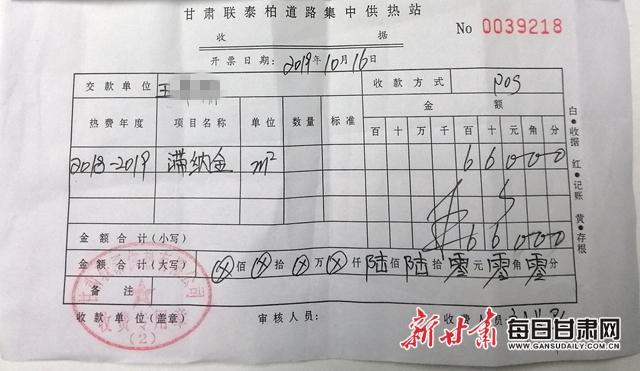 甘肃联泰柏道路集中供热站
收 据
No 0039218
开票日期: 2019年10月16日
交款单位 王 收款方式 pos
热费年度 项目名称 单位 数量 标准 金额
百 十 万 千 百 十 元 角 分
2018-2019 滞纳金 m² 6 6 0 0 0
金额合计(小写) 6 6 0 0 0
金额合计(大写) ⊗佰⊗拾⊗万⊗仟陆佰陆拾零元零角零分
备注
收款单位(盖章) 审核人员: 收费人员:
白●收据 红●记账 黄●存根
收费专用章
(2)
新甘肃 每日甘肃网
WWW.GANSUDAILY.COM.CN